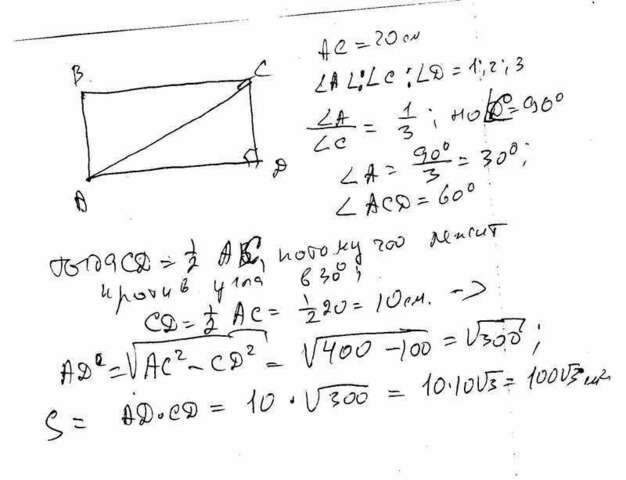 B C
A D
AC = 20 см
∠A : ∠C : ∠D = 1; 2; 3
∠A / ∠C = 1/3; но = 90°
∠A = 90°/3 = 30°;
∠ACD = 60°
тогда CD = 1/2 AC, потому что лежит
против угла в 30°;
CD = 1/2 AC = 1/2 20 = 10 см. →
AD² = √AC² - CD² = √400 - 100 = √300;
S = AD · CD = 10 · √300 = 10 · 10√3 = 100√3 см²